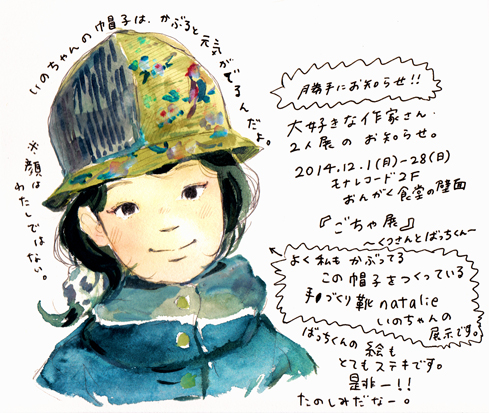 いのちゃんの帽子は、かぶると元気がでるんだよ。
※顔は
わたしではない。
勝手にお知らせ!!
大好きな作家さん・
2人展のお知らせ。
2014.12.1(月)-28(日)
モナレコード2F
おんがく食堂の壁面
『ごちゃ展』
〜くつさんとばっちくん〜
よく私もかぶってる
この帽子をつくっている
手づくり靴natalie
いのちゃんの
展示です。
ばっちくんの絵も
とてもステキです。
是非ー!!
たのしみだなー。